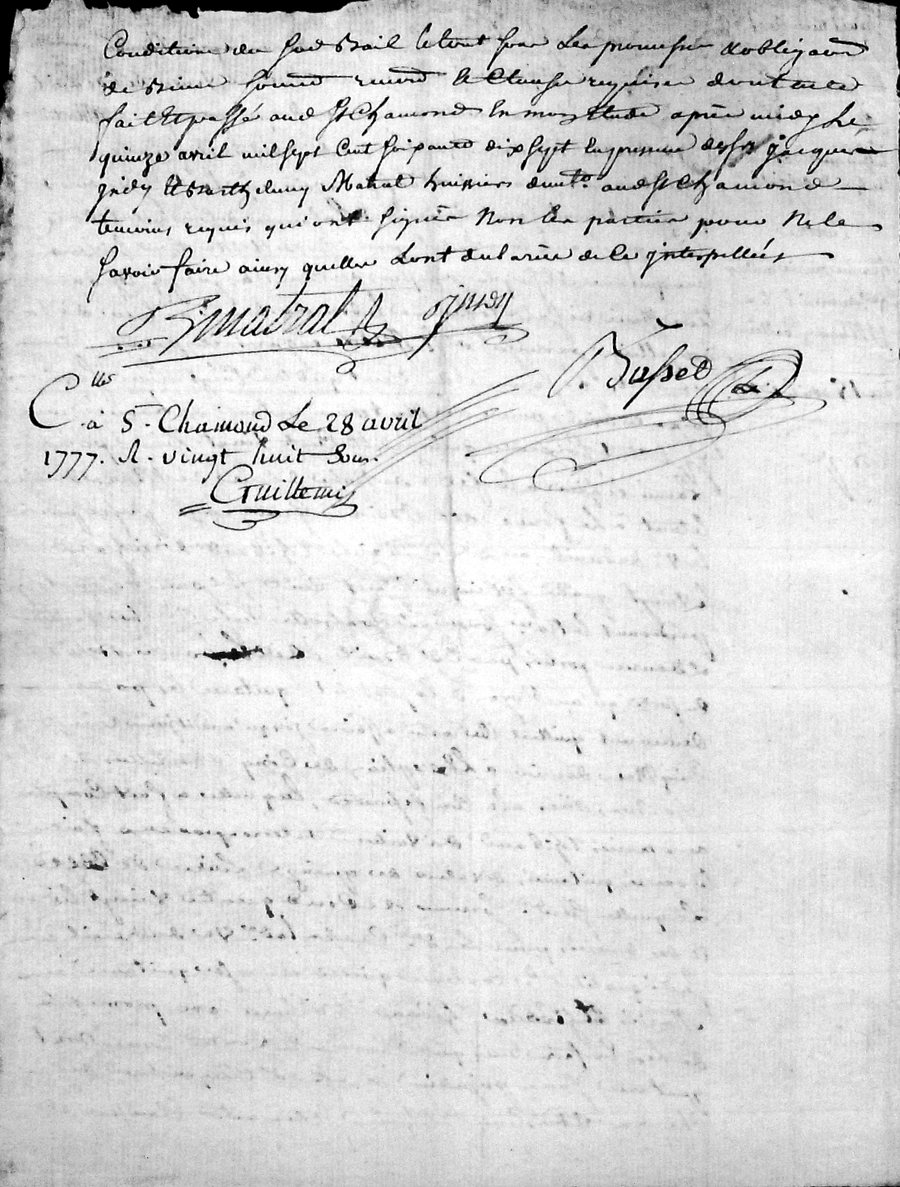 Condition du sud Bail le tout sous Les promesses & obligaon
de biens soumd renond & Clause requises dont acte
fait et passé aud St Chamond En mon Etude après midy Le
quinze avril mil sept Cent soixante dix sept En presence des srs jacques
& Barthelemy Matral huissiers demts aud St Chamond
temoins requis qui ont signés Non Les parties pour Ne le
savoir faire ainsy quelles L'ont declarées de ce interpellées
Bmatral
Busset
Clléé
à St Chamond Le 28 avril
1777. R. vingt huit sous.
Guillemin